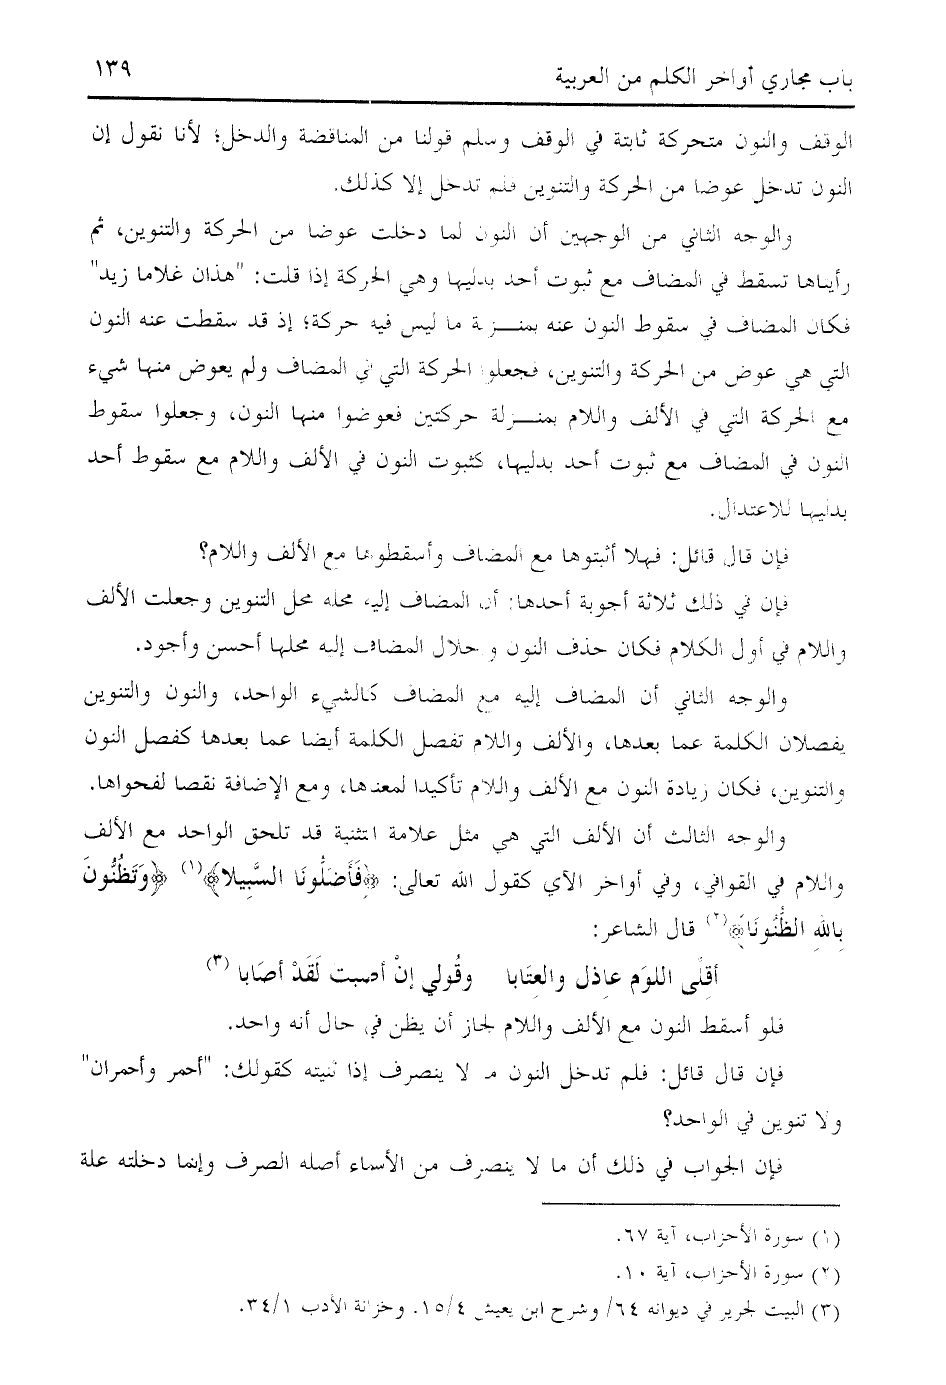 باب مجاري أواخر الكلم من العربية
١٣٩
الوقف والنون متحركة ثابتة في الوقف وسلم قولنا من المناقضة والدخل؛ لأنا نقول إن
النون تدخل عوضا من الحركة والتنوين فلم تدخل إلا كذلك.
والوجه الثاني من الوجهين أن النون لما دخلت عوضا من الحركة والتنوين، ثم
رأيناها تسقط في المضاف مع ثبوت أحد بدليها وهي الحركة إذا قلت: "هذان غلاما زيد"
فكان المضاف في سقوط النون عنه بمنـزلة ما ليس فيه حركة؛ إذ قد سقطت عنه النون
التي هي عوض من الحركة والتنوين، فجعلوا الحركة التي في المضاف ولم يعوض منها شيء
مع الحركة التي في الألف واللام بمنـزلة حركتين فعوضوا منها النون، وجعلوا سقوط
النون في المضاف مع ثبوت أحد بدليها، كثبوت النون في الألف واللام مع سقوط أحد
بدليها للاعتدال.
فإن قال قائل: فهلا أثبتوها مع المضاف وأسقطوها مع الألف واللام؟
فإن في ذلك ثلاثة أجوبة أحدها: أن المضاف إليه محله محل التنوين وجعلت الألف
واللام في أول الكلام فكان حذف النون و حلال المضاف إليه محلها أحسن وأجود.
والوجه الثاني أن المضاف إليه مع المضاف كالشيء الواحد، والنون والتنوين
يفصلان الكلمة عما بعدها، والألف واللام تفصل الكلمة أيضا عما بعدها كفصل النون
والتنوين، فكان زيادة النون مع الألف واللام تأكيدا لمعندها، ومع الإضافة نقصا لفحواها.
والوجه الثالث أن الألف التي هي مثل علامة التثنية قد تلحق الواحد مع الألف
واللام في القوافي، وفي أواخر الآي كقول الله تعالى: ﴿فَأَضَلُّونَا السَّبِيلا﴾(١) ﴿وَتَظُنُّونَ
بِاللهِ الظُّنُونَا﴾(٢) قال الشاعر:
أقِلِّى اللومَ عاذل والعِتَابا وقُولي إنْ أصبت لَقَدْ أصَابا (٣)
فلو أسقط النون مع الألف واللام لجاز أن يظن في حال أنه واحد.
فإن قال قائل: فلم تدخل النون ما لا ينصرف إذا ثنيته كقولك: "أحمر وأحمران"
ولا تنوين في الواحد؟
فإن الجواب في ذلك أن ما لا ينصرف من الأسماء أصله الصرف وإنما دخلته علة
(١) سورة الأحزاب، آية ٦٧.
(٢) سورة الأحزاب، آية ١٠.
(٣) البيت لجرير في ديوانه ٦٤/ وشرح ابن يعيش ١٥/٤. وخزانة الأدب ٣٤/١.